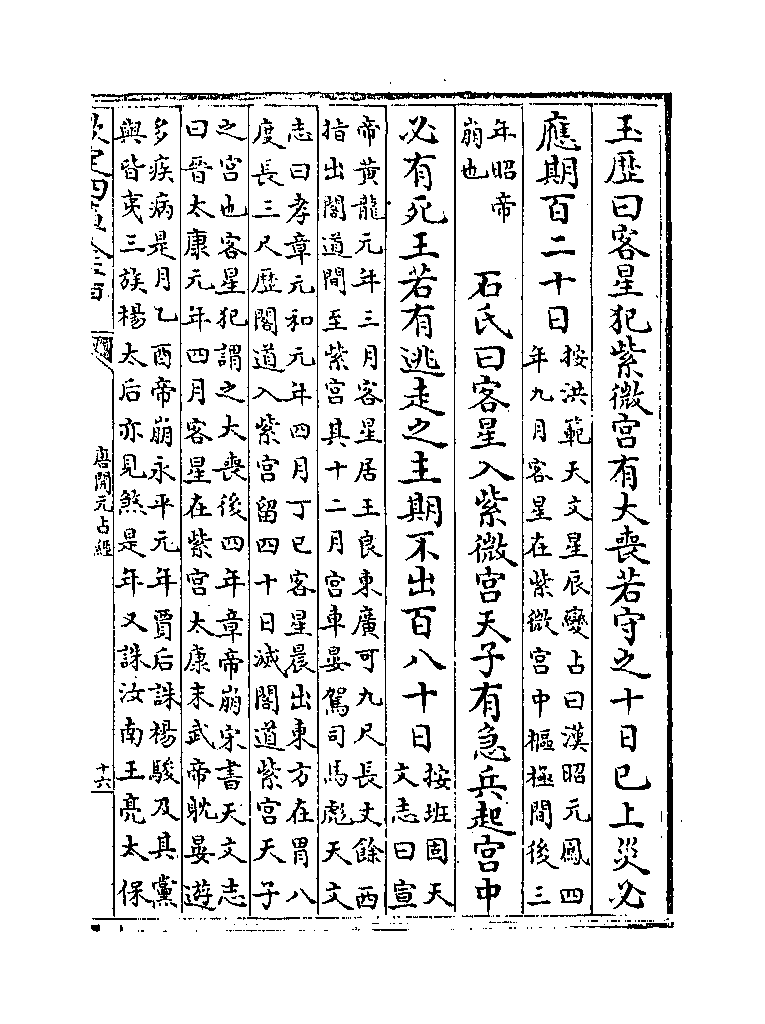 玉歴曰客星犯紫微宫有大喪若守之十日已上災必
應期百二十日
按洪範天文星辰變占曰漢昭元鳳四
年九月客星在紫微宫中樞極間後三
年昭帝
崩也
石氏曰客星入紫微宫天子有急兵起宫中
必有死王若有逃走之主期不出百八十日
按班固天
文志曰宣
帝黄龍元年三月客星居王良東廣可九尺長丈餘西
指出閣道間至紫宫其十二月宫車晏駕司馬彪天文
志曰孝章元和元年四月丁巳客星晨出東方在胃八
度長三尺歴閣道入紫宫留四十日滅閣道紫宫天子
之宫也客星犯謂之大喪後四年章帝崩宋書天文志
曰晉太康元年四月客星在紫宫太康末武帝耽晏遊
多疾病是月乙酉帝崩永平元年賈后誅楊駿及其黨
與皆夷三族楊太后亦見煞是年又誅汝南王亮太保
欽定四庫全書
唐開元占經
十六